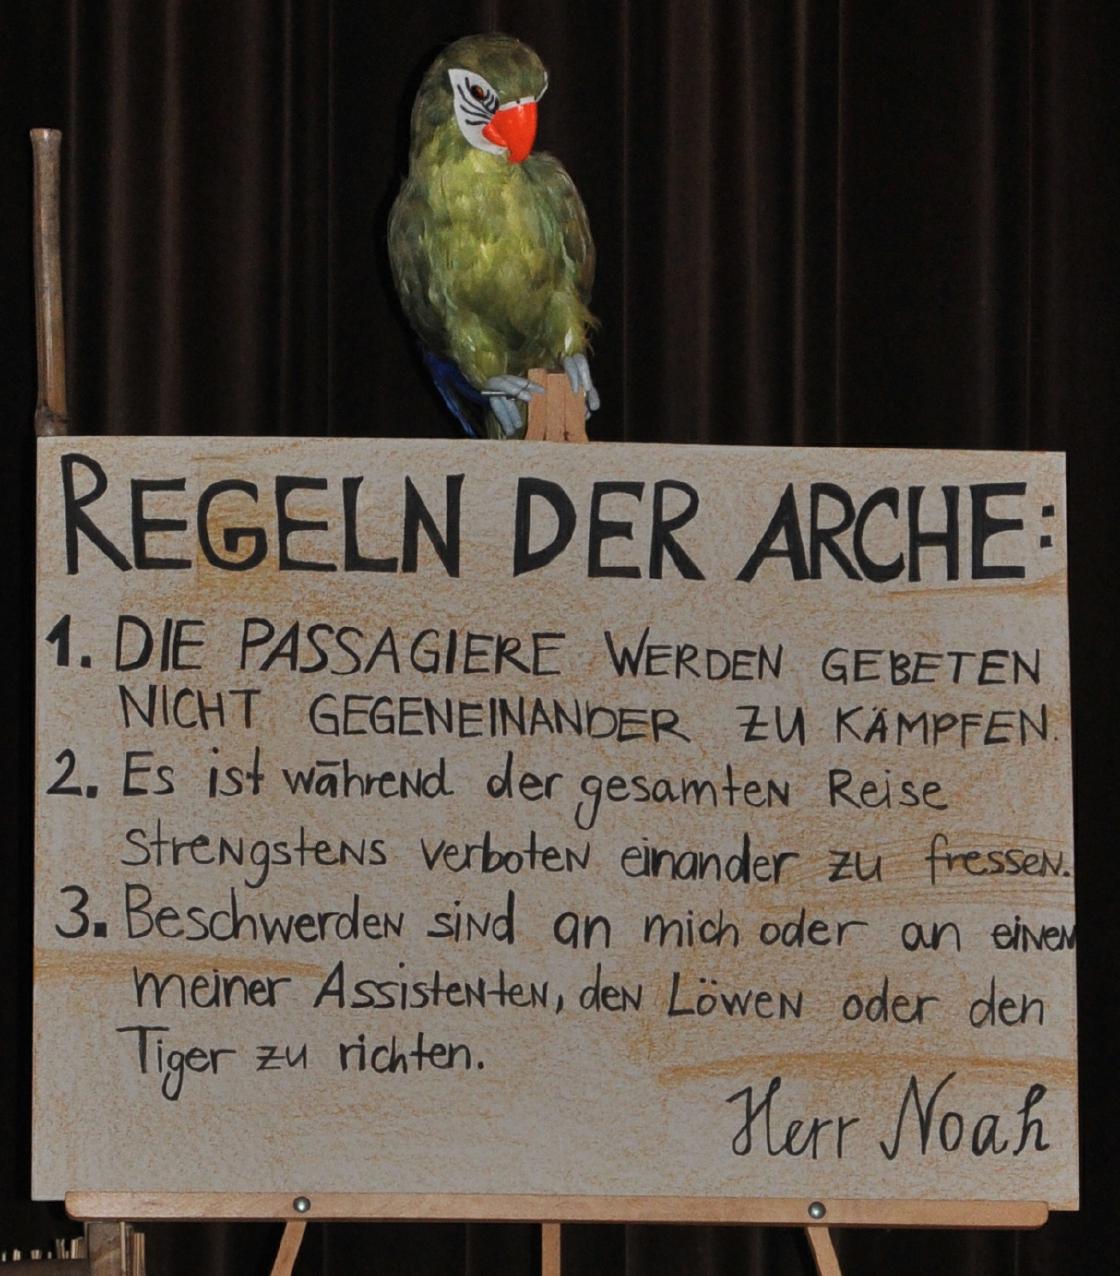 REGELN DER ARCHE:
1. DIE PASSAGIERE WERDEN GEBETEN
NICHT GEGENEINANDER ZU KÄMPFEN.
2. Es ist während der gesamten Reise
strengstens verboten einander zu fressen.
3. Beschwerden sind an mich oder an einen
meiner Assistenten, den Löwen oder den
Tiger zu richten.
Herr Noah